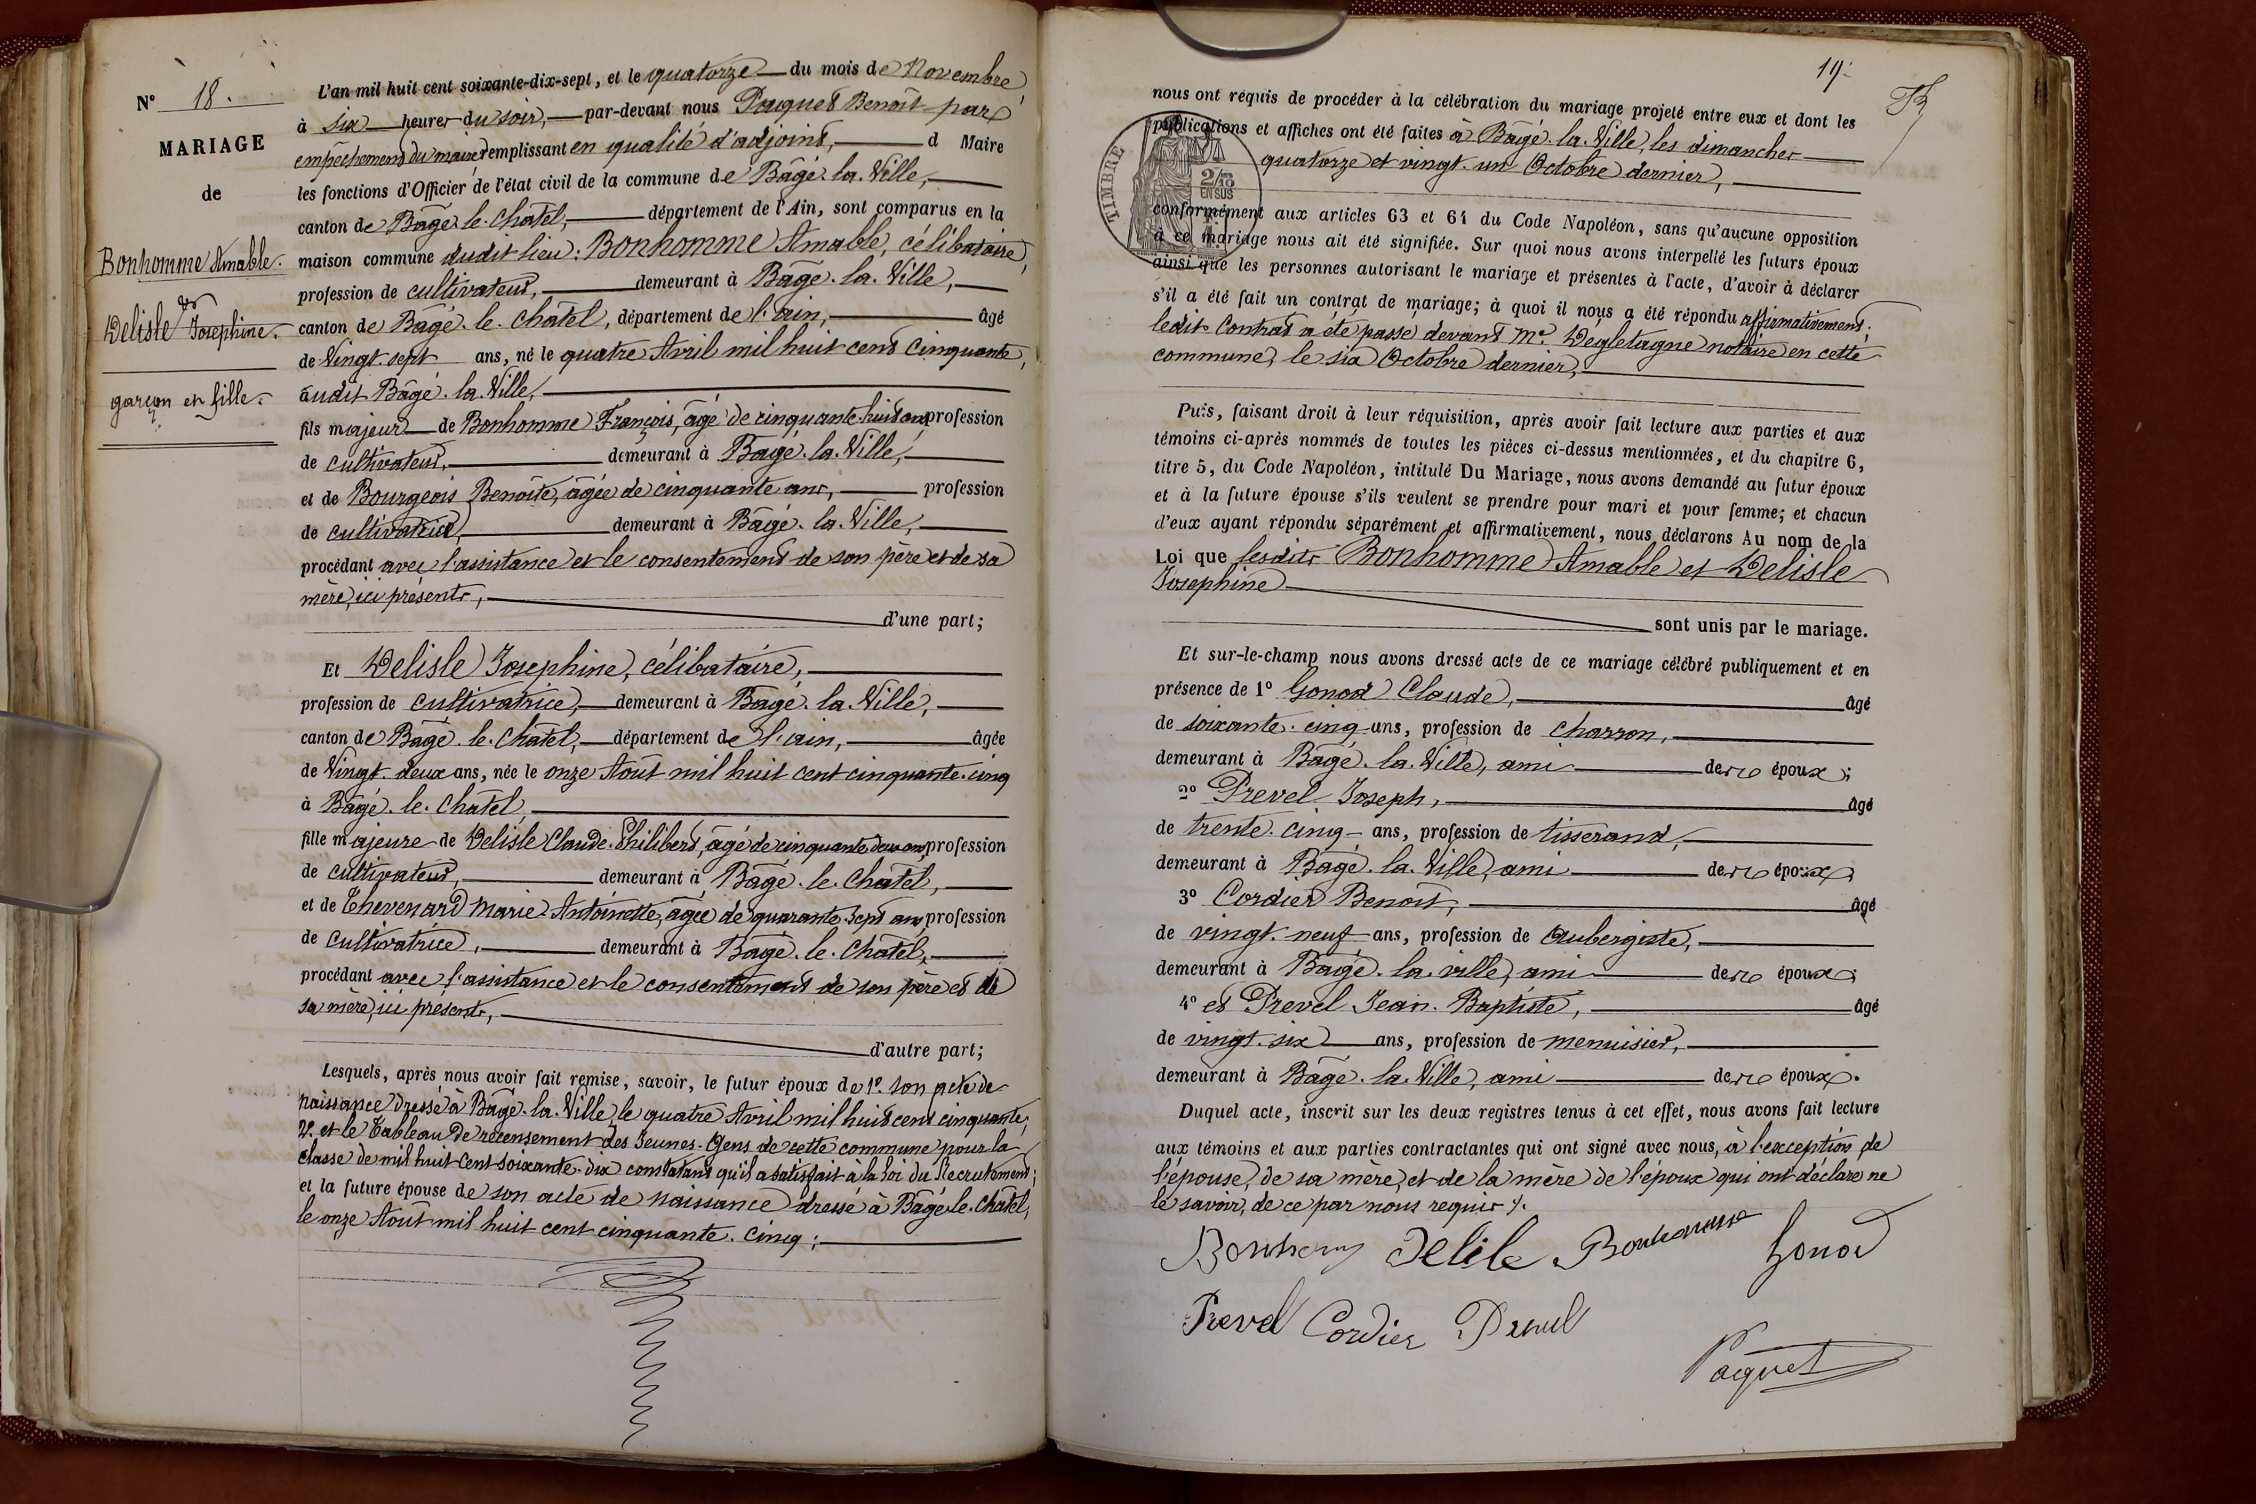 N° 18.
MARIAGE
de
Bonhomme Amable.
et
Delisle Josephine.
garçon et fille.
L'an mil huit cent soixante-dix-sept, et le quatorze du mois de Novembre,
à six heures du soir, par-devant nous Paquet Benoit par
empêchement du maire, remplissant en qualité d'adjoint, d Maire
les fonctions d'Officier de l'état civil de la commune de Bâgé-la-Ville,
canton de Bâgé-le-Châtel, département de l'Ain, sont comparus en la
maison commune dudit lieu : Bonhomme Amable, célibataire,
profession de cultivateur, demeurant à Bâgé-la-Ville,
canton de Bâgé-le-Châtel, département de l'ain, âgé
de Vingt-sept ans, né le quatre Avril mil huit cent cinquante,
audit Bâgé-la-Ville,
fils majeur de Bonhomme François, âgé de cinquante-huit ans, profession
de cultivateur, demeurant à Bâgé-la-Ville,
et de Bourgeois Benoîte, âgée de cinquante ans, profession
de cultivatrice, demeurant à Bâgé-la-Ville,
procédant avec l'assistance et le consentement de son père et de sa
mère, ici présents,
d'une part;
Et Delisle Josephine, célibataire,
profession de cultivatrice, demeurant à Bâgé-la-Ville,
canton de Bâgé-le-Châtel, département de l'ain, âgée
de Vingt-deux ans, née le onze Août mil huit cent cinquante-cinq
à Bâgé-le-Châtel,
fille majeure de Delisle Claude-Philibert, âgé de cinquante-deux ans, profession
de cultivateur, demeurant à Bâgé-le-Châtel,
et de Thevenard Marie-Antoinette, âgée de quarante-sept ans, profession
de cultivatrice, demeurant à Bâgé-le-Châtel,
procédant avec l'assistance et le consentement de son père et de
sa mère, ici présents,
d'autre part;
Lesquels, après nous avoir fait remise, savoir, le futur époux de 1° son acte de
naissance dressé à Bâgé-la-Ville, le quatre Avril mil huit cent cinquante,
2° et le Tableau de recensement des Jeunes-Gens de cette commune pour la
classe de mil huit cent soixante-dix constatant qu'il a satisfait à la loi du Recrutement;
et la future épouse de son acte de naissance dressé à Bâgé-le-Châtel,
le onze Août mil huit cent cinquante-cinq;
19
nous ont requis de procéder à la célébration du mariage projeté entre eux et dont les
publications et affiches ont été faites à Bâgé-la-Ville, les dimanches
quatorze et vingt-un Octobre dernier,
TIMBRE
2/10
EN SUS
conformément aux articles 63 et 64 du Code Napoléon, sans qu'aucune opposition
à ce mariage nous ait été signifiée. Sur quoi nous avons interpellé les futurs époux
ainsi que les personnes autorisant le mariage et présentes à l'acte, d'avoir à déclarer
s'il a été fait un contrat de mariage; à quoi il nous a été répondu affirmativement;
ledit Contrat a été passé devant Me notaire en cette
commune, le six Octobre dernier,
Puis, faisant droit à leur réquisition, après avoir fait lecture aux parties et aux
témoins ci-après nommés de toutes les pièces ci-dessus mentionnées, et du chapitre 6,
titre 5, du Code Napoléon, intitulé Du Mariage, nous avons demandé au futur époux
et à la future épouse s'ils veulent se prendre pour mari et pour femme; et chacun
d'eux ayant répondu séparément et affirmativement, nous déclarons Au nom de la
Loi que lesdits Bonhomme Amable et Delisle
Josephine
sont unis par le mariage.
Et sur-le-champ nous avons dressé acte de ce mariage célébré publiquement et en
présence de 1° Gonod Claude, âgé
de soixante-cinq ans, profession de charron,
demeurant à Bâgé-la-Ville, ami des époux;
2° Prevel Joseph, âgé
de trente-cinq ans, profession de tisserand,
demeurant à Bâgé-la-Ville, ami des époux;
3° Cordier Benoit, âgé
de vingt-neuf ans, profession de Aubergiste,
demeurant à Bâgé-la-ville, ami des époux;
4° et Prevel Jean-Baptiste, âgé
de vingt-six ans, profession de menuisier,
demeurant à Bâgé-la-Ville, ami des époux.
Duquel acte, inscrit sur les deux registres tenus à cet effet, nous avons fait lecture
aux témoins et aux parties contractantes qui ont signé avec nous, à l'exception de
l'épouse, de sa mère, et de la mère de l'époux qui ont déclaré ne
le savoir, de ce par nous requis.
Delile Gonod
Prevel Cordier
Paquet